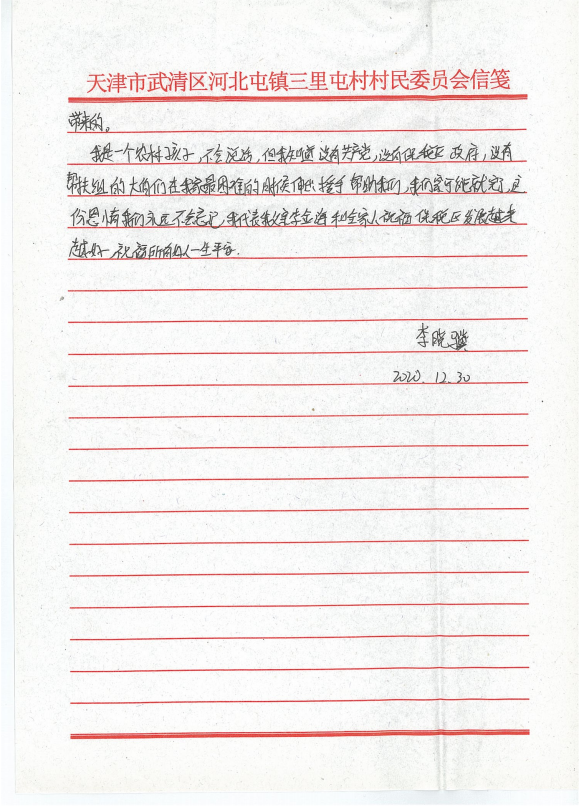 天津市武清区河北屯镇三里屯村村民委员会信笺
带来的。
我是一个农村孩子,不会说话,但我知道没有共产党,没有保税区政府,没有
帮扶组的大哥们在我家最困难的时候伸出援手帮助我们,我们家可能就完了,这
份恩情我们永远不会忘记,我代表我父母李金海和全家人祝福保税区发展越来
越好,祝福所有好人一生平安.
李晓
2020.12.30